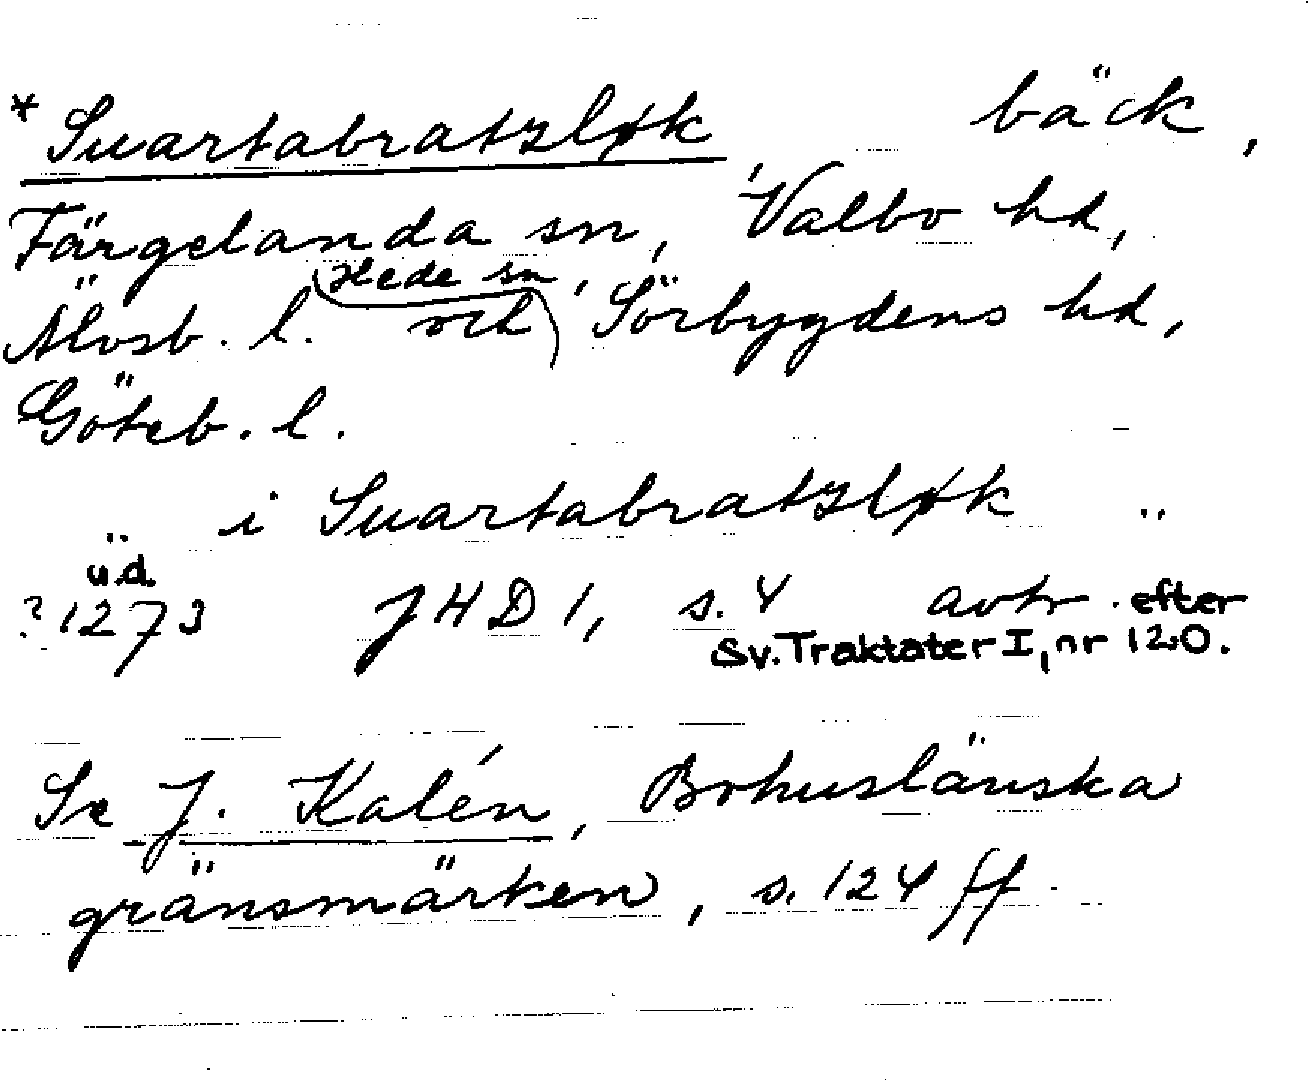 *Suartabratzløk, bäck,
Färgelanda sn, Valbo hd,
Älvsb. l. (och Hede sn,) Sörbygdens hd,
Göteb. l.
i Suartabratzløk "
u.d.
?1273 JHD 1, s. 4 avtr. efter
Sv. Traktater I, nr 120.
Se J. Kalén, Bohuslänska
gränsmärken, s. 124 ff.